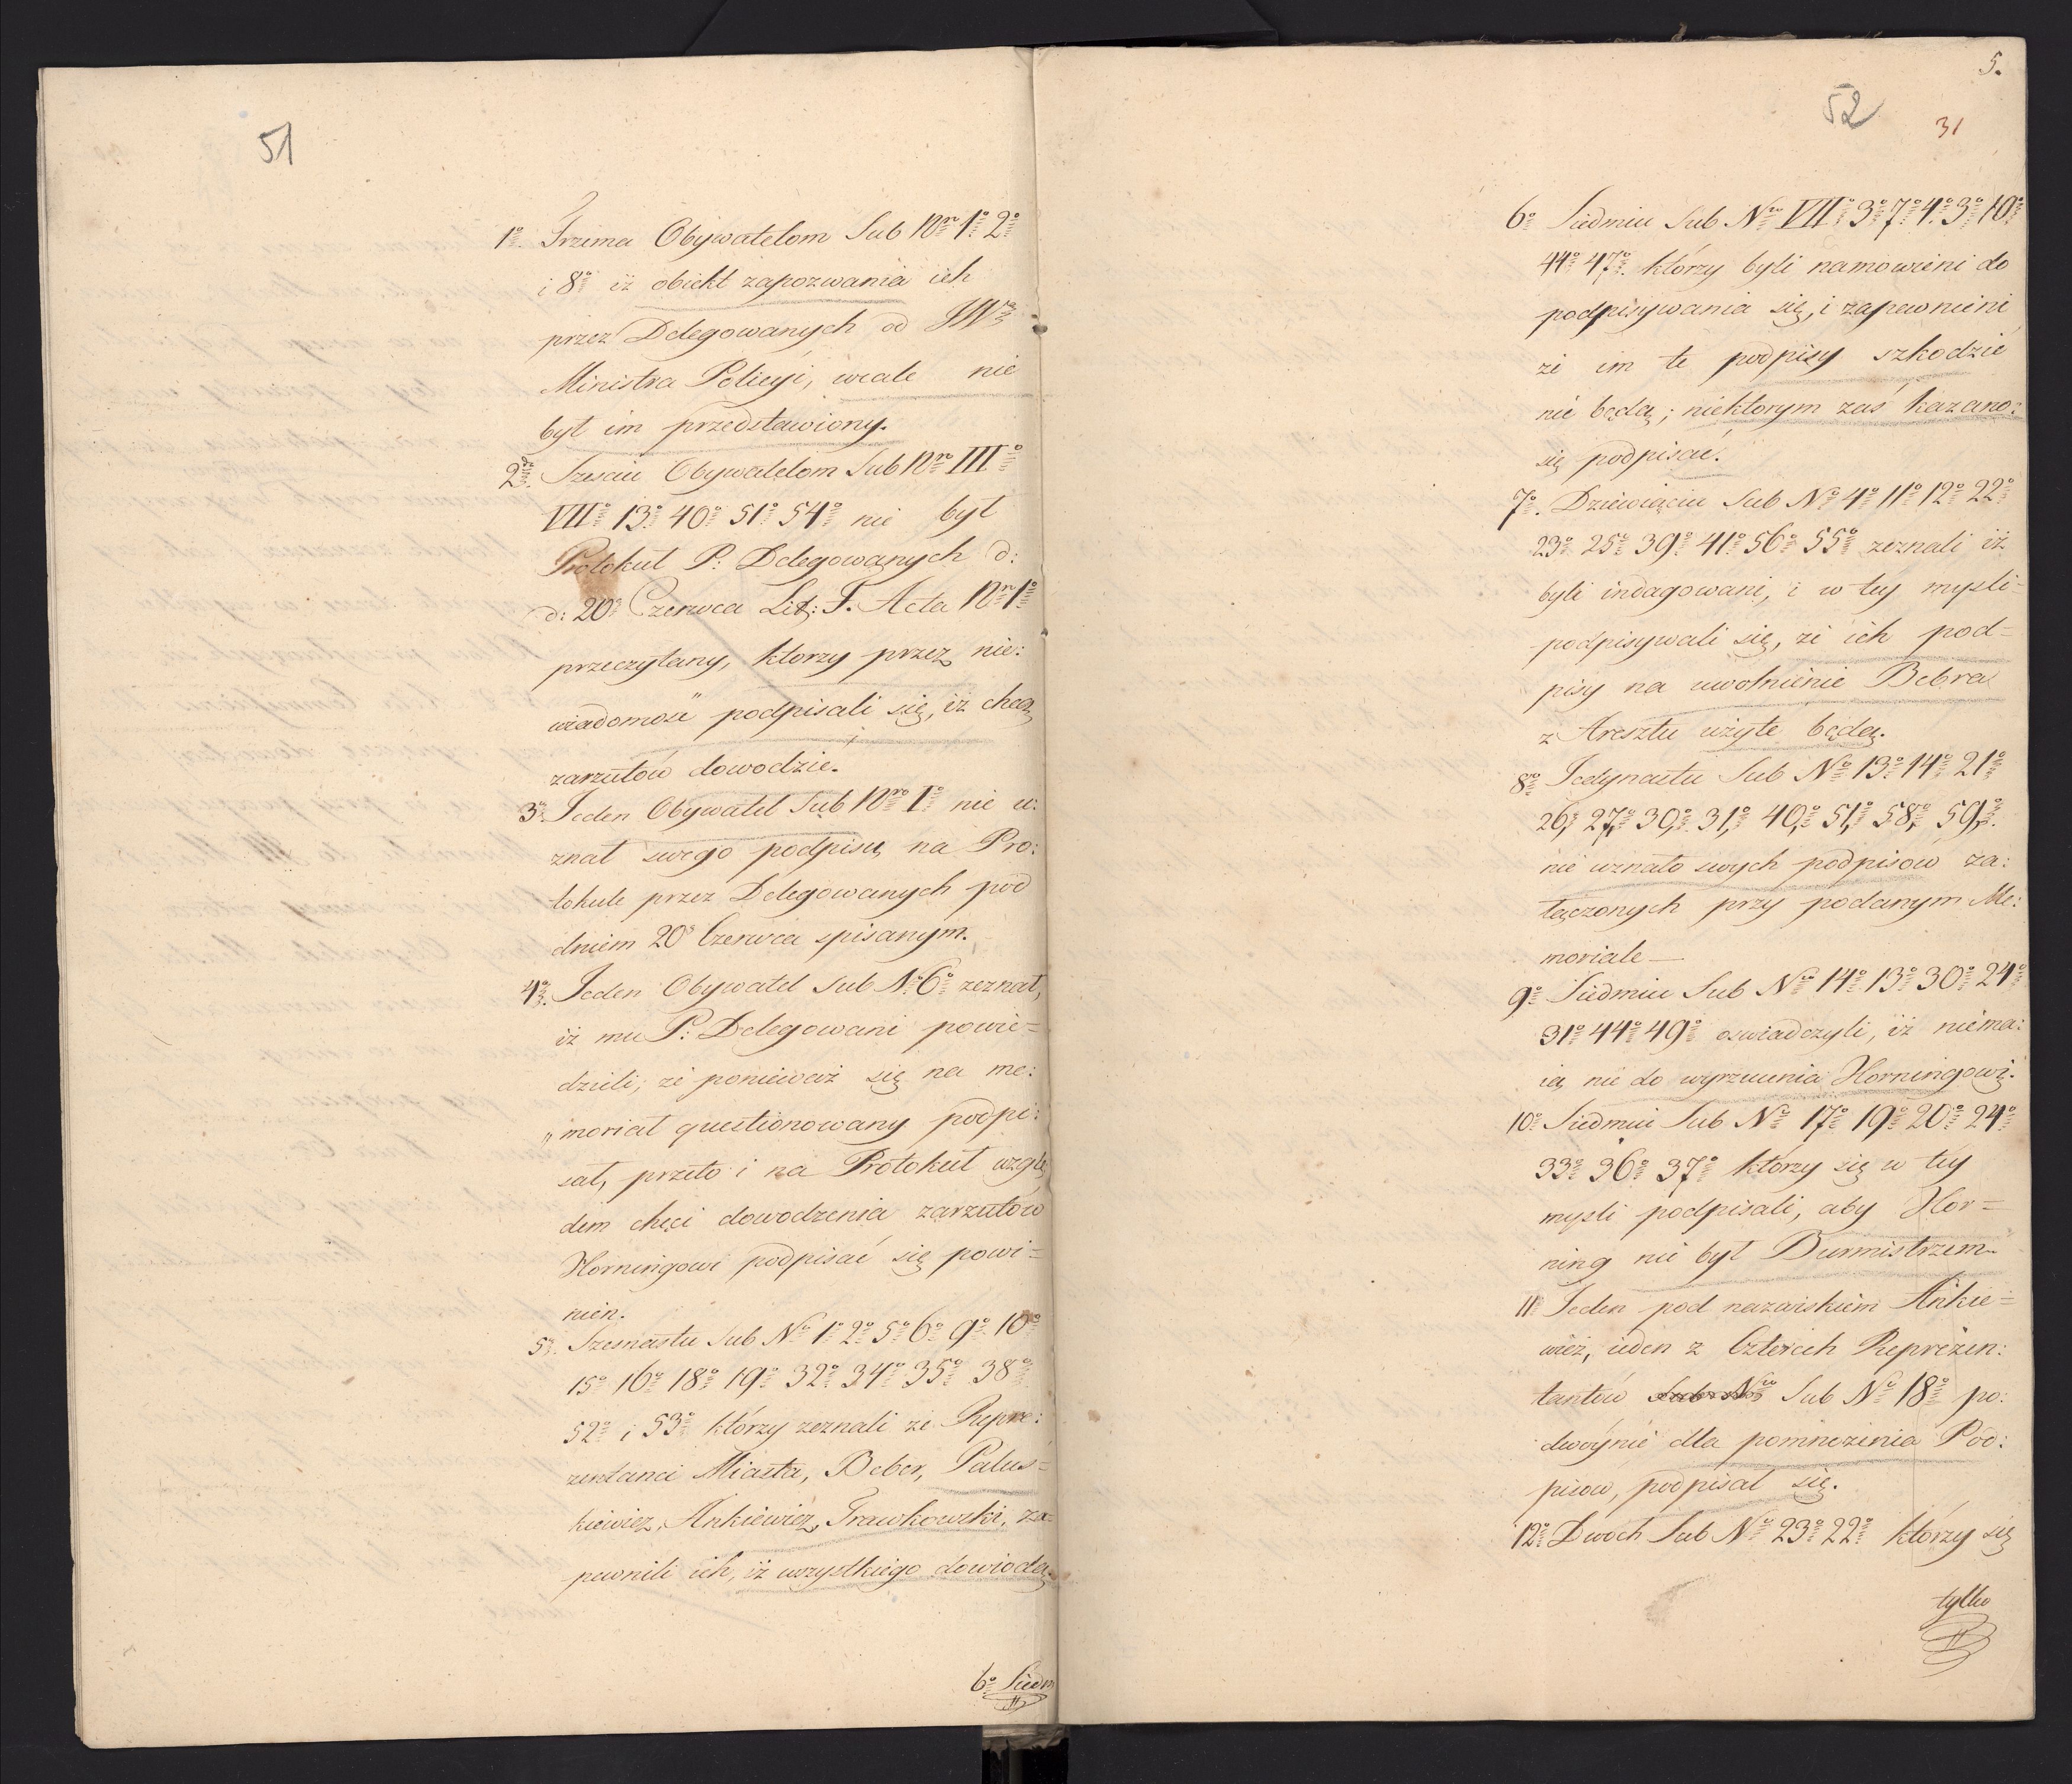 51
1º Trzema Obywatelom Sub Nro 1º 2º
i 8º iż obiekt zapozwania ich
przez Delegowanych od JW
Ministra Policyi, wcale nie
był im przedstawiony.
2do Szesciu Obywatelom Sub Nro III º
VIIº 13º 40º 51º 54º nie był
Protokuł P: Delegowanych d:
d: 20º Czerwca Lit: F. Acta Nro 1º
przeczytany, ktorzy przez nie:
wiadomość podpisali się, iż chcą
zarzutów dowodzić.
3º Jeden Obywatel Sub Nro Iº nie u:
znał swego podpisu na Pro:
tokule przez Delegowanych pod
dniem 20º Czerwca spisanym.
4º Jeden Obywatel Sub Nº 6º zeznał,
iż mu P: Delegowani powie=
dzieli; że ponieważ się na me:
"moriał questionowany podpi:
sał, przeto i na Protokuł wzglę
dem chęci dowodzenia zarzutów
Horningowi podpisać się powi=
nien.
5º Szesnastu Sub Nº 1º 2º 5º 6º 9º 10º
15º 16º 18º 19º 32º 34º 35º 38º
52º i 53º którzy zeznali że Repre:
zentanci Miasta, Beber, Palus=
kiewicz, Ankiewicz, Trawkowski, za=
pewnili ich, iż wszystkiego dowiodą.
6º Siedm
5.
52
31
6º Siedmiu Sub Nro VIIº 3º 7º 4º 3º 10º
44º 47º którzy byli namowieni do
podpisywania się, i zapewnieni
że im te podpisy szkodzić
nie będą; niektorym zaś kazano:
się podpisać.
7º. Dziewięciu Sub Nº 4º 11º 12º 22º
23º 25º 39º 41º 56º 55º zeznali iż
byli indagowani, i w tey mysli=
podpisywali się, że ich pod=
pisy na uwolnienie Bebra
z Aresztu użyte będą.
8º Jedynastu Sub Nº 13º 14º 21º
26º 27º 30º 31º 40º 51º 58º 59º.
nie uznało swych podpisow za:
łączonych przy podanym Me:
moriale —
9º Siedmiu Sub Nro 14º 13º 30º 24º
31º 44º 49º oswiadczyli, iż niema:
ią nic do wyrzucenia Horningowi.
10º Siedmiu Sub Nº 17º 19º 20º 24º
33º 36º 37º którzy się w tey
mysli podpisali, aby Hor=
ning nie był Burmistrzem.
11º Jeden pod nazwiskiem Ankie=
wicz, ieden z Czterech Reprezen:
tantów Sub Nº 18º po:
dwóynie dla pomnożenia Pod:
pisow, podpisał się.
12º Dwoch Sub Nº 23º 22º którzy się
tylko